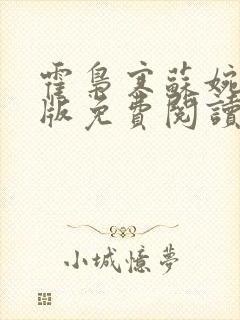 霍梟寒蘇婉
版免費閱讀
小城憶夢